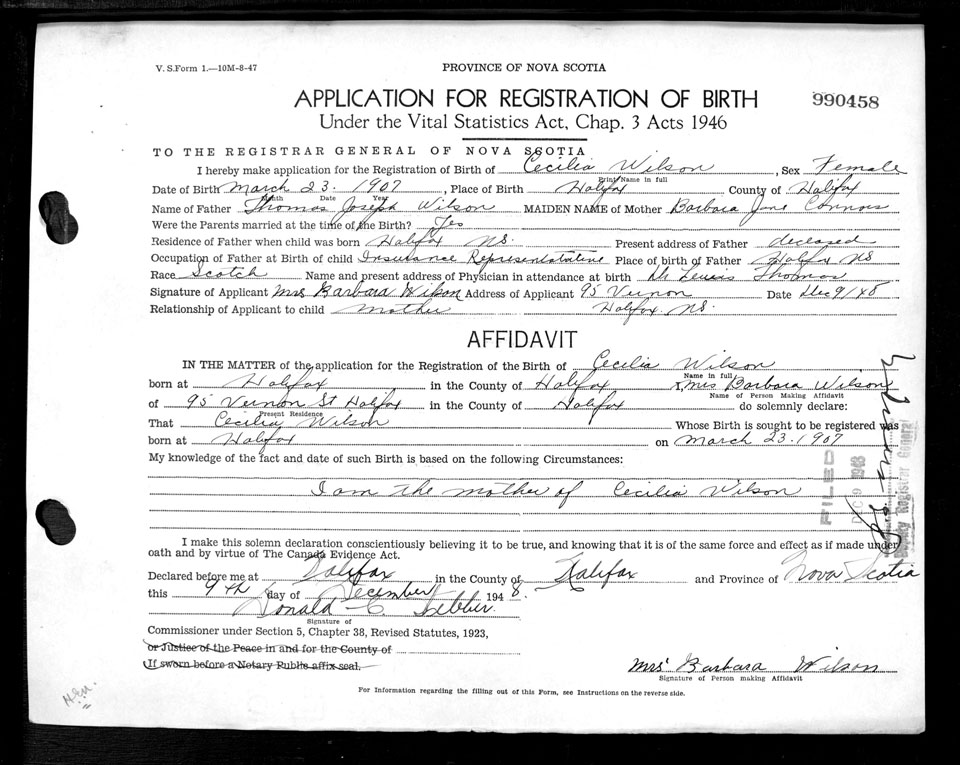 V. S. Form 1.—10M-8-47
PROVINCE OF NOVA SCOTIA
APPLICATION FOR REGISTRATION OF BIRTH
990458
Under the Vital Statistics Act, Chap. 3 Acts 1946
TO THE REGISTRAR GENERAL OF NOVA SCOTIA
I hereby make application for the Registration of Birth of Cecilia Wilson, Sex Female
Print Name in full
Date of Birth March 23. 1907, Place of Birth Halifax County of Halifax
Month Date Year
Name of Father Thomas Joseph Wilson MAIDEN NAME of Mother Barbara Jane Connors
Were the Parents married at the time of the Birth? Yes
Residence of Father when child was born Halifax NS. Present address of Father deceased
Occupation of Father at Birth of child Insurance Representative Place of birth of Father Halifax NS
Race Scotch Name and present address of Physician in attendance at birth Dr. Lewis Thomas
Signature of Applicant Mrs Barbara Wilson Address of Applicant 95 Vernon Date Dec 9/48
Relationship of Applicant to child mother Halifax. NS.
AFFIDAVIT
IN THE MATTER of the application for the Registration of the Birth of Cecilia Wilson
Name in full
born at Halifax in the County of Halifax I, Mrs Barbara Wilson
Name of Person Making Affidavit
of 95 Vernon St Halifax in the County of Halifax do solemnly declare:
Present Residence
That Cecilia Wilson Whose Birth is sought to be registered was
born at Halifax on March 23. 1907
My knowledge of the fact and date of such Birth is based on the following Circumstances:
I am the mother of Cecilia Wilson
FILED
DEC 9 1948
Deputy Registrar General
I make this solemn declaration conscientiously believing it to be true, and knowing that it is of the same force and effect as if made under
oath and by virtue of The Canada Evidence Act.
Declared before me at Halifax in the County of Halifax and Province of Nova Scotia
this 9th day of December 1948.
Donald C.
Signature of
Commissioner under Section 5, Chapter 38, Revised Statutes, 1923,
or Justice of the Peace in and for the County of
If sworn before a Notary Public affix seal.
Mrs Barbara Wilson
Signature of Person making Affidavit
For Information regarding the filling out of this Form, see Instructions on the reverse side.